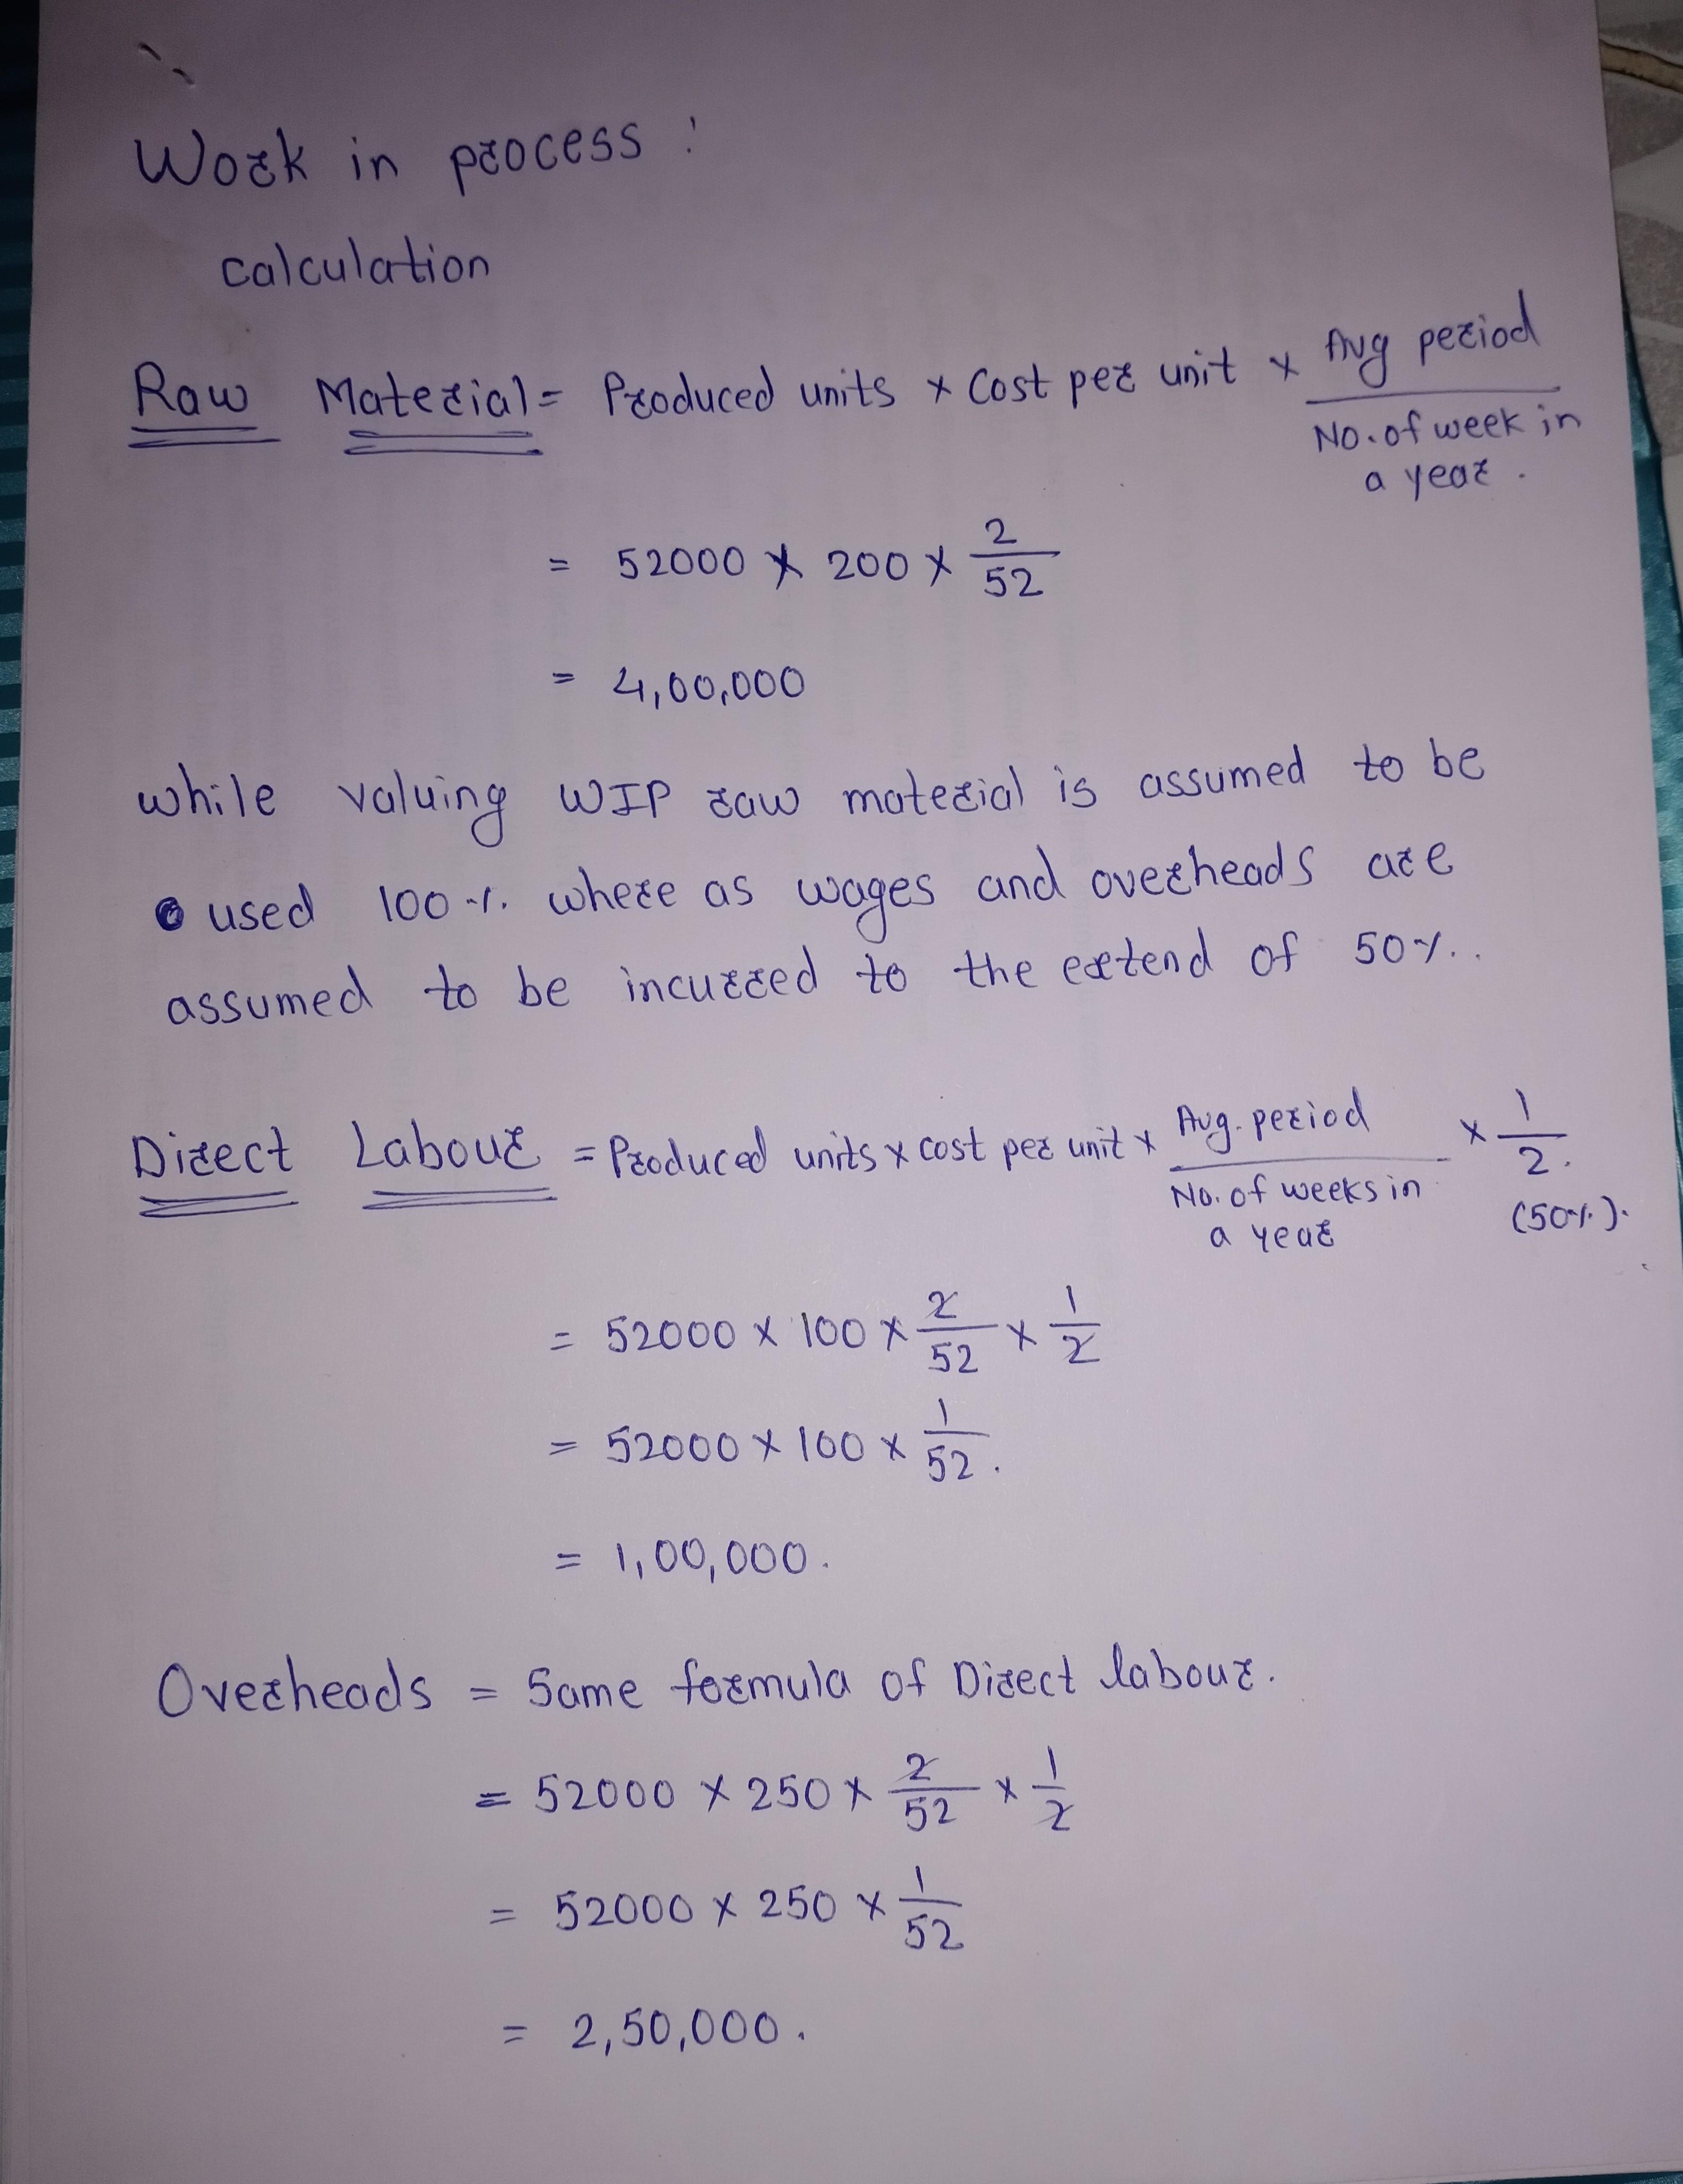 Work in process :
calculation
Raw Material = Produced units x Cost per unit x Avg period / No. of week in a year.
= 52000 x 200 x 2/52
= 4,00,000
while valuing WIP raw material is assumed to be
used 100 %. where as wages and overheads are
assumed to be incurred to the extend of 50%..
Direct Labour = Produced units x cost per unit x Avg. period / No. of weeks in a year x 1/2. (50%).
= 52000 x 100 x 2/52 x 1/2
= 52000 x 100 x 1/52.
= 1,00,000.
Overheads = Same formula of Direct labour.
= 52000 x 250 x 2/52 x 1/2
= 52000 x 250 x 1/52
= 2,50,000.